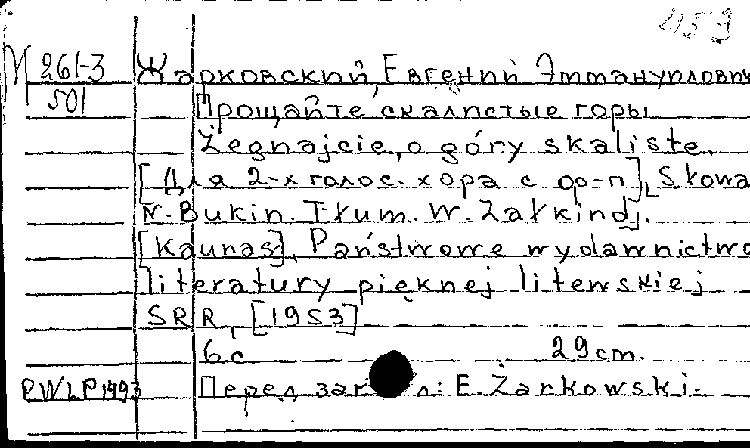 459
М 261-3
501
Жарковский, Евгений Эммануилович
Прощайте скалистые горы
Żegnajcie, o góry skaliste.
[Для 2-х голос. хора с ф-п], Słowa
N. Bukin. Tłum. W. Załkind].
[Kaunas], Państwowe wydawnictwo
literatury pięknej litewskiej
SRR, [1953]
6 с 29 cm.
PWLP 1493
Перед заг л: E. Żarkowski.